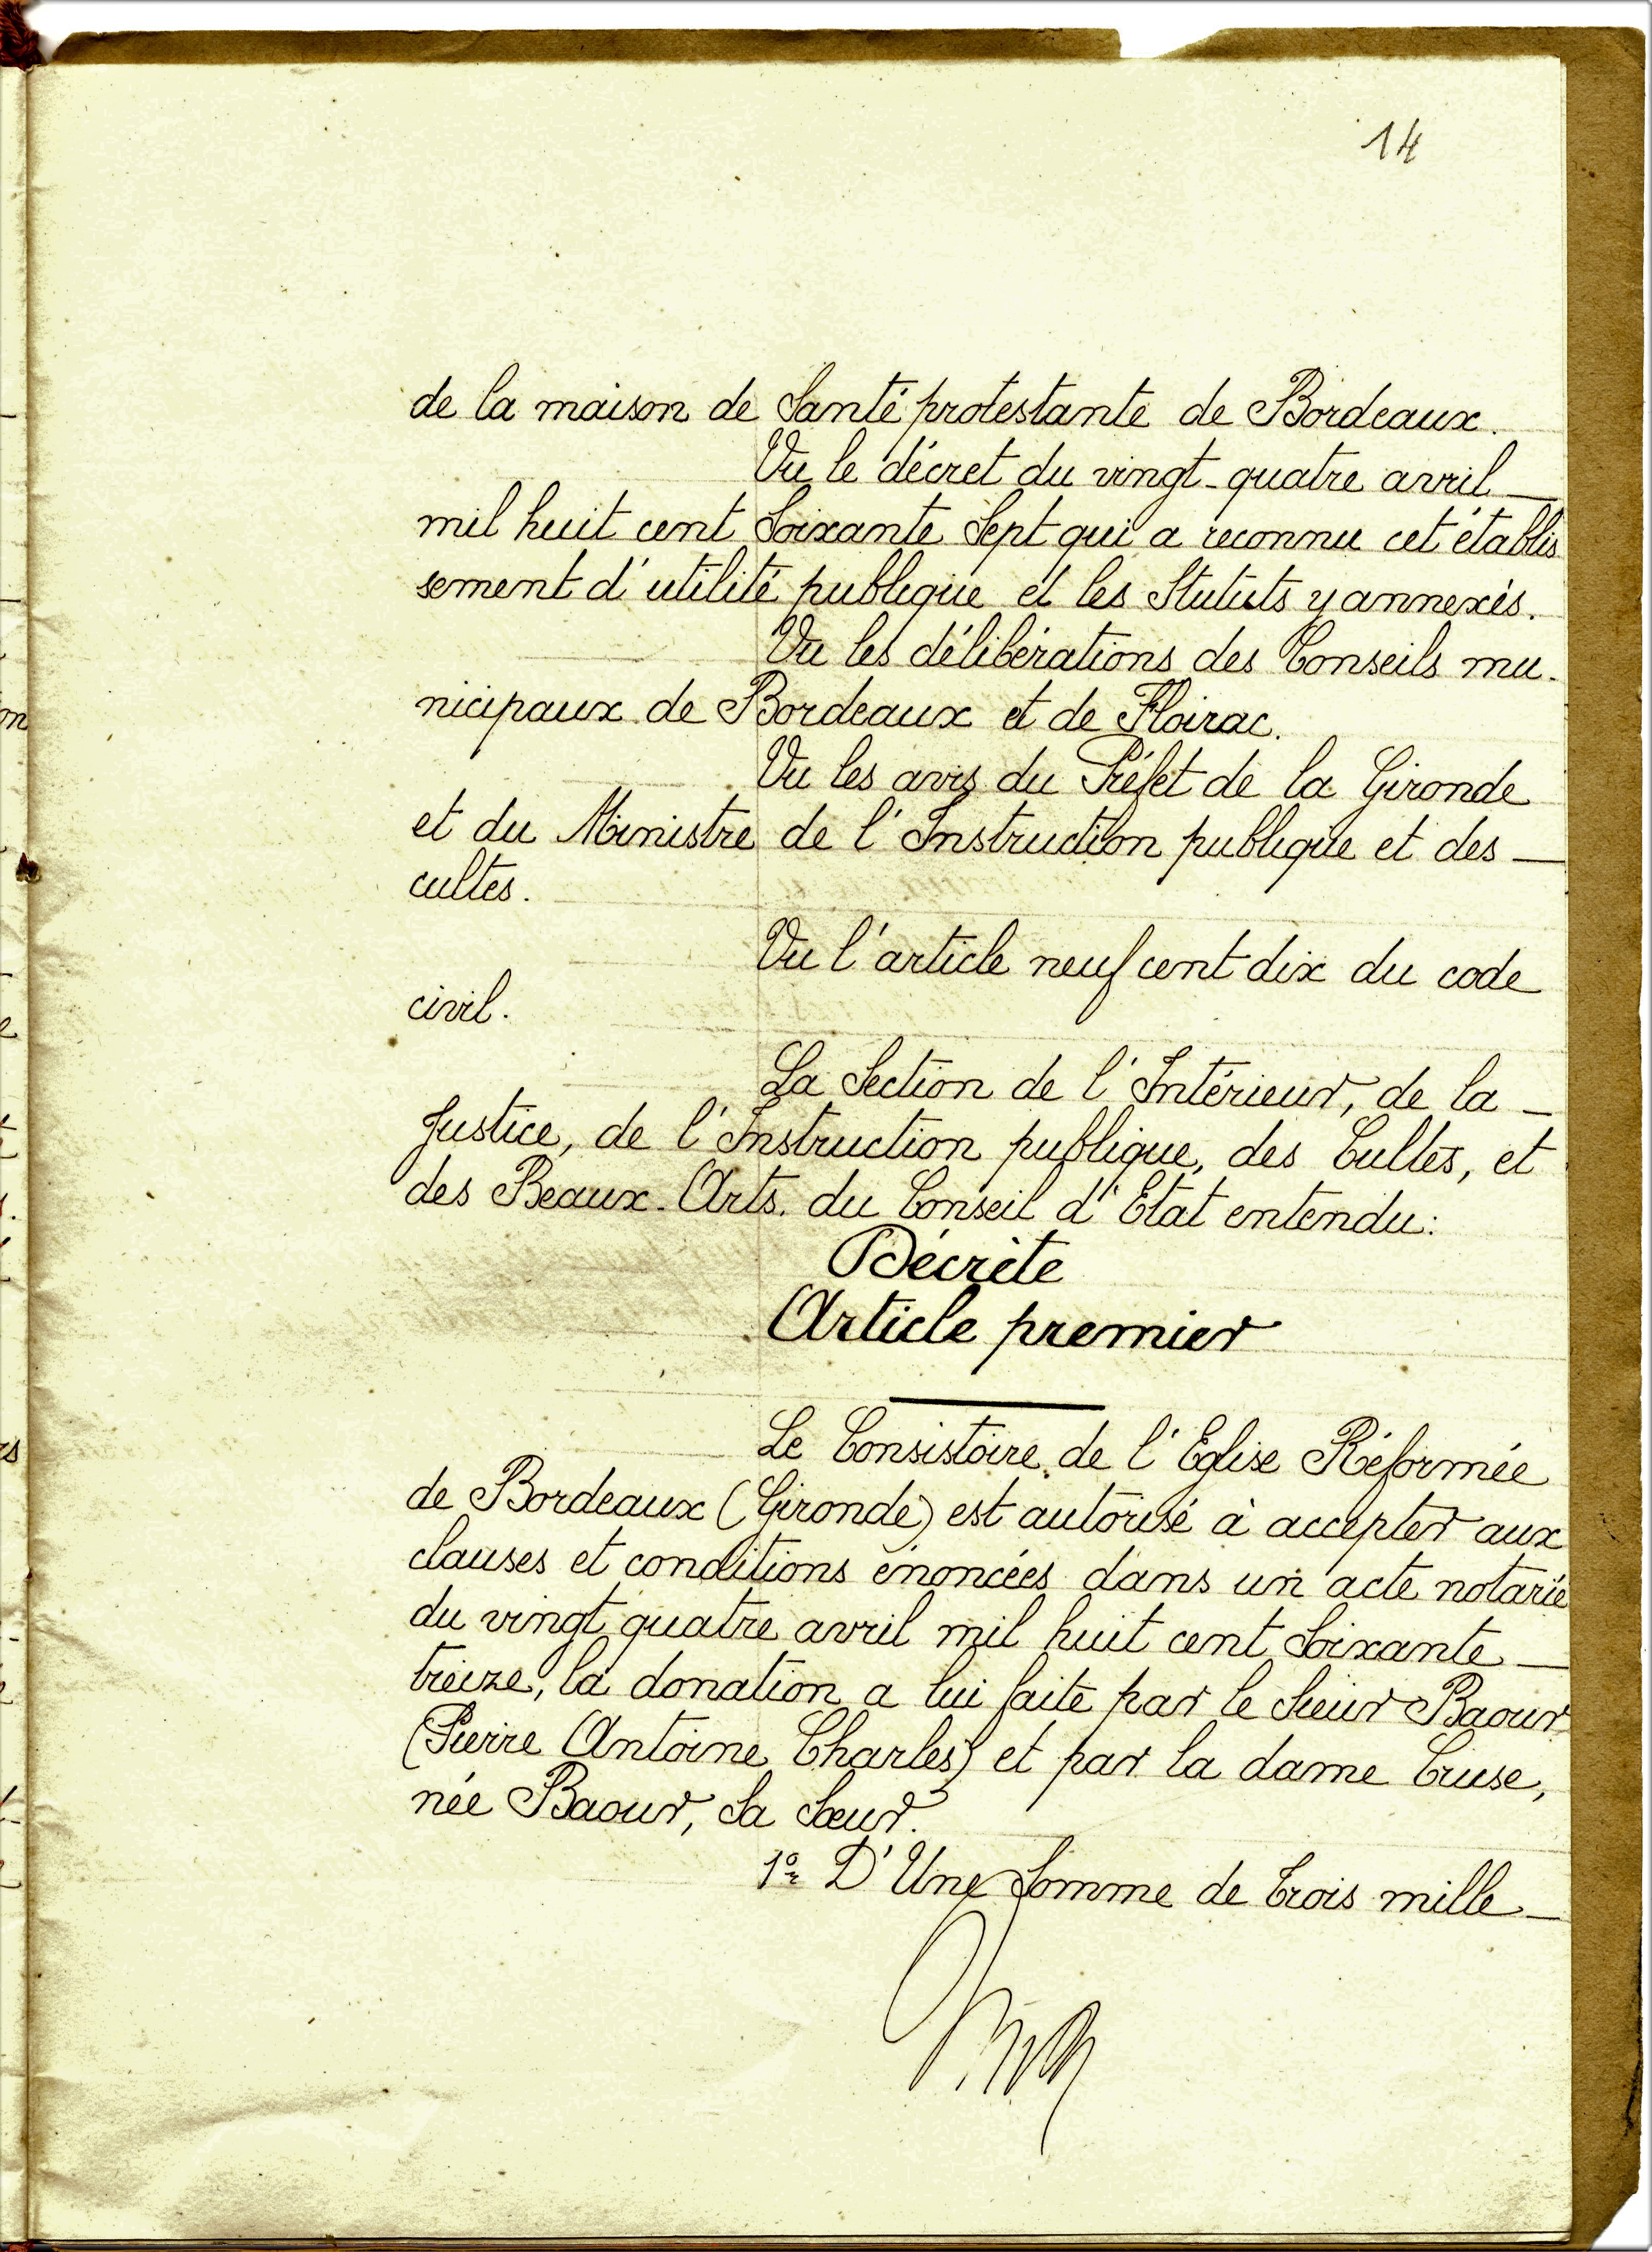 14
de la maison de Santé protestante de Bordeaux.
Vu le décret du vingt-quatre avril
mil huit cent Soixante Sept qui a reconnu cet établis
sement d'utilité publique et les Statuts y annexés.
Vu les délibérations des Conseils mu-
nicipaux de Bordeaux et de Floirac.
Vu les avis du Préfet de la Gironde
et du Ministre de l'Instruction publique et des
cultes.
Vu l'article neuf cent dix du code
civil.
La Section de l'Intérieur, de la
Justice, de l'Instruction publique, des Cultes, et
des Beaux-Arts. du Conseil d'Etat entendu:
Décrète
Article premier
Le Consistoire de l'Eglise Réformée
de Bordeaux (Gironde) est autorisé à accepter aux
clauses et conditions énoncées dans un acte notarié
du vingt quatre avril mil huit cent Soixante
treize, la donation a lui faite par le Sieur Baour
(Pierre Antoine Charles) et par la dame Cruse,
née Baour, Sa Sœur.
1º D'Une Somme de Trois mille